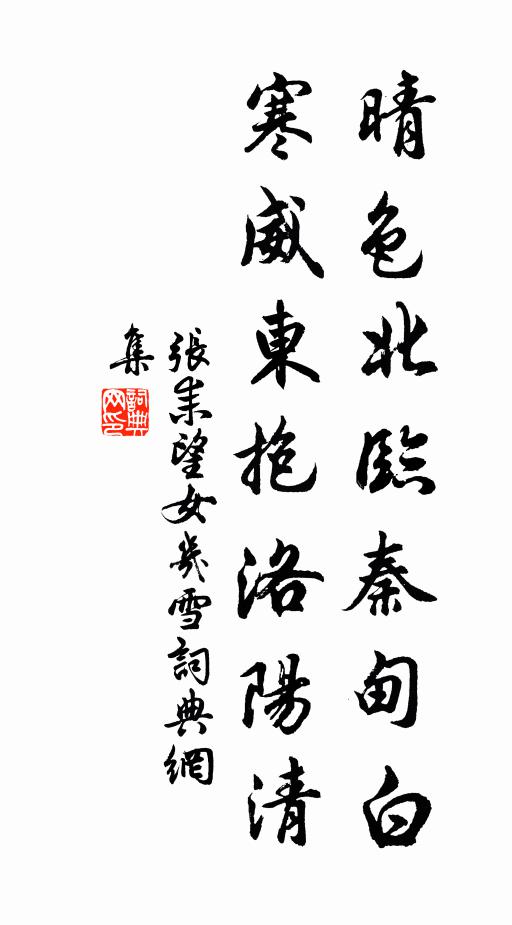 晴色北臨秦甸白
寒威東抱洛陽清
張耒望女几雪詞典網
集
詞典
网印